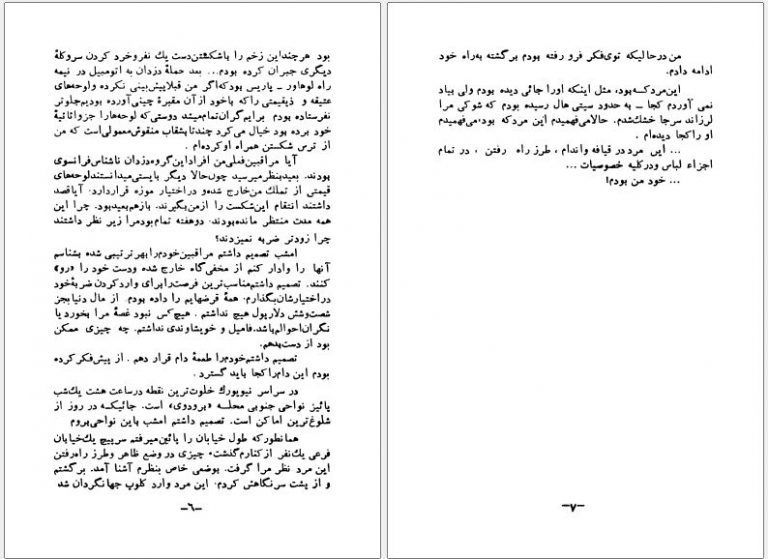 بود هرچنداین زخم را باشکستن‌دست یك نفروخرد کردن سروکلهٔ
دیگری جبران کرده بودم... بعد حملهٔ دزدان به اتومبیل در نیمه
راه لوهاور ـ پاریس بودکه‌اگر من قبلاپیش‌بینی نکرده ولوحه‌های
عتیقه و ذیقیمتی راکه باخود ازآن مقبرهٔ چینی‌آورده بودیم‌جلوتر
نفرستاده بودم برایم‌گران‌تمام‌میشد دوستی‌که لوحه‌هارا جزواثاثیهٔ
خود برده بود خیال می‌کرد چندتابشقاب منقوش‌معمولی‌است که من
از ترس شکستن همراه اوکرده‌ام .
آیا مراقبین‌فعلی‌من افراداین‌گروه‌دزدان ناشناس‌فرانسوی
بودند. بعیدبنظرمیرسید چون‌حالا دیگر بایستی‌میدانستندلوحه‌های
قیمتی از تملك من‌خارج شده‌و دراختیار موزه قراردارد. آیاقصد
داشتند انتقام این‌شکست را ازمن‌بگیرند. بازهم‌بعیدبود. چرا این
همه مدت منتظر مانده‌بودند. دوهفته تمام‌بودمرا زیر نظر داشتند
چرا زودتر ضربه نمیزدند؟
امشب تصمیم داشتم مراقبین‌خودم‌را بهر‌ترتیبی شده بشناسم
آنها را وادار کنم از مخفی‌گاه خارج شده ودست خود را «رو»
کنند. تصمیم داشتم‌مناسب‌ترین فرصت‌رابرای واردکردن ضربهٔ‌خود
دراختیارشان‌بگذارم. همهٔ قرضهایم را داده بودم . از مال دنیابجز
شصت‌وشش دلارپول هیچ نداشتم . هیچ‌کس نبود غصهٔ مرا بخورد یا
نگران‌احوالم‌باشد.فامیل و خویشاوندی نداشتم. چه چیزی ممکن
بود از دست‌بدهم.
تصمیم داشتم‌خودم‌را طعمهٔ دام قرار دهم . از پیش‌فکرکرده
بودم این دام‌راکجا باید گسترد .
در سراسر نیویورك خلوت‌ترین نقطه درساعت هشت یك‌شب
پائیز نواحی جنوبی محلـه «برودوی» است. جائیکـه در روز از
شلوغ‌ترین اماکن است. تصمیم داشتم امشب باین نواحی‌بروم
همانطورکه طول خیابان را پائین‌میرفتم سرپیچ یك‌خیابان
فرعی یك‌نفر ازکنارم‌گذشت، چیزی در وضع ظاهر وطرز راه‌رفتن
این مرد نظر مرا گرفت. بوضعی خاص بنظرم آشنا آمد. برگشتم
و از پشت سرنگاهش کردم. این مرد وارد کلوپ جهانگردان شد
ـ۶ـ
من درحالیکه توی‌فکر فرو رفته بودم برگشته به‌راه خود
ادامه دادم.
این‌مردکـه‌بود، مثل اینکه اورا جائی دیده بودم ولی بیاد
نمی آوردم کجا ـ به حدود سیتی هال رسیده بودم که شوکی مرا
لرزاند سرجا خشك‌شدم. حالامی‌فهمیدم این مردکه بود،می‌فهمیدم
او راکجا دیده‌ام .
... این مرد در قیافه واندام ، طرز راه رفتن ، در تمام
اجزاء لباس ودرکلیه خصوصیات ...
... خود من بودم!
ـ۷ـ